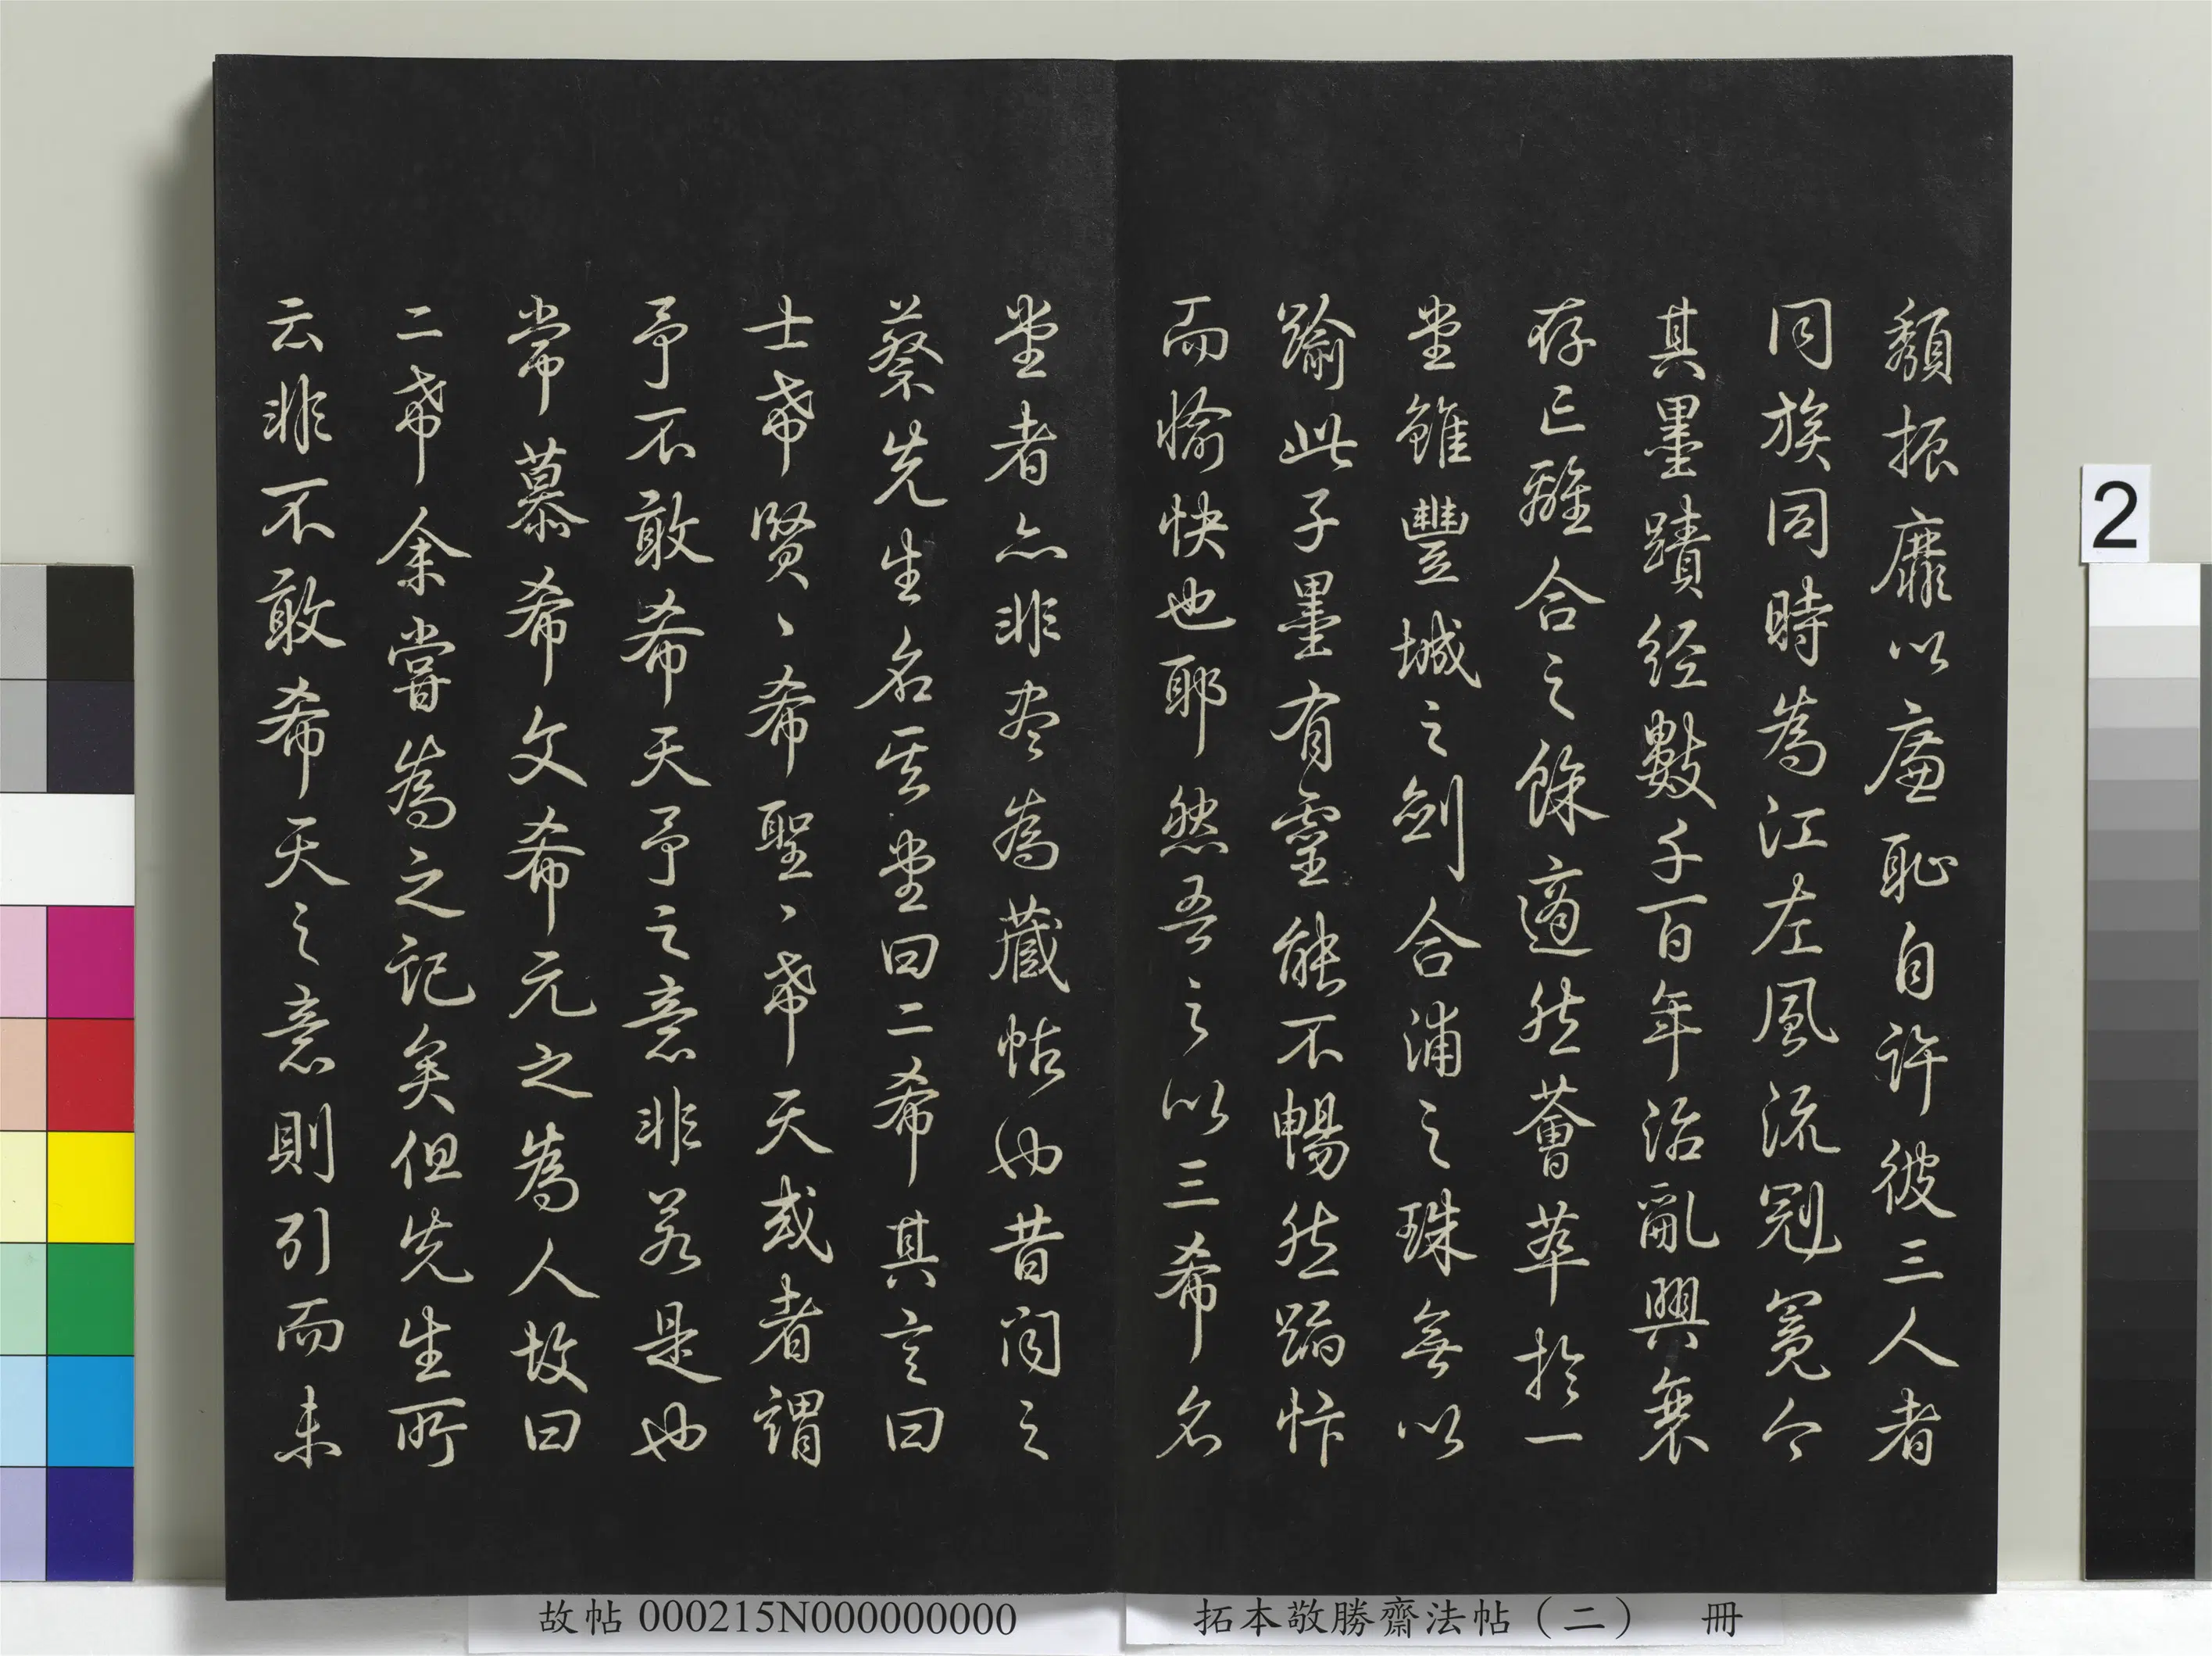 頹振靡以廉恥自許彼三人者
同族同時為江左風流冠冕今
其墨蹟經數千百年治亂興衰
存亡離合之餘適然薈萃於一
堂雖豐城之劍合浦之珠無以
踰此子墨有靈能不暢然踴忭
而愉快也耶然吾之以三希名
堂者亦非盡為藏帖也昔聞之
蔡先生名其堂曰二希其言曰
士希賢〻希聖〻希天或者謂
予不敢希天予之意非若是也
常慕希文希元之為人故曰
二希余嘗為之記矣但先生所
云非不敢希天之意則引而未
2
拓本敬勝齋法帖（二） 冊
故帖 000215N000000000